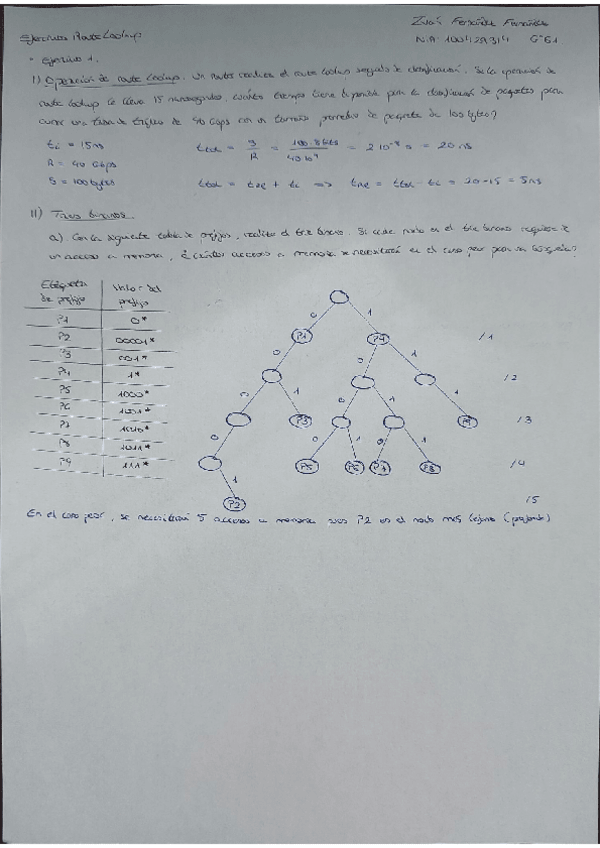 Iván Fernández Fernández
Ejercicios Route Lookup
NIA 100429314 G-61
• Ejercicio 1.
I) Operación de route lookup. Un router realiza el route lookup seguido de clasificación. Si la operación de
route lookup le lleva 15 nanosegundos, cuánto tiempo tiene disponible para la clasificación de paquetes para
cursar una tasa de tráfico de 40 Gbps con un tamaño promedio de paquete de 100 bytes?
= 15ns
R = 40 Gbps
S = 100 bytes
= S / R = 100·8 bits / = 2·10⁻⁸ s = 20 ns
= + => = - = 20-15 = 5ns
II) Tries binarios.
a) Con la siguiente tabla de prefijos, realiza el trie binario. Si cada nodo en el trie binario requiere de
un acceso a memoria, ¿cuántos accesos a memoria se necesitará en el caso peor para una búsqueda?
Etiqueta de prefijo Valor del prefijo
P1 0*
P2 00001*
P3 001*
P4 1*
P5 1000*
P6 1001*
P7 1010*
P8 1011*
P9 111*
0 1
P1 P4 /1
0 0 1
/2
0 1 0 1 1
P3 P9 /3
0 0 1 0 1
P5 P6 P7 P8 /4
1
P2 /5
En el caso peor, se necesitará 5 accesos a memoria P2 es el nodo más lejano (profundo)